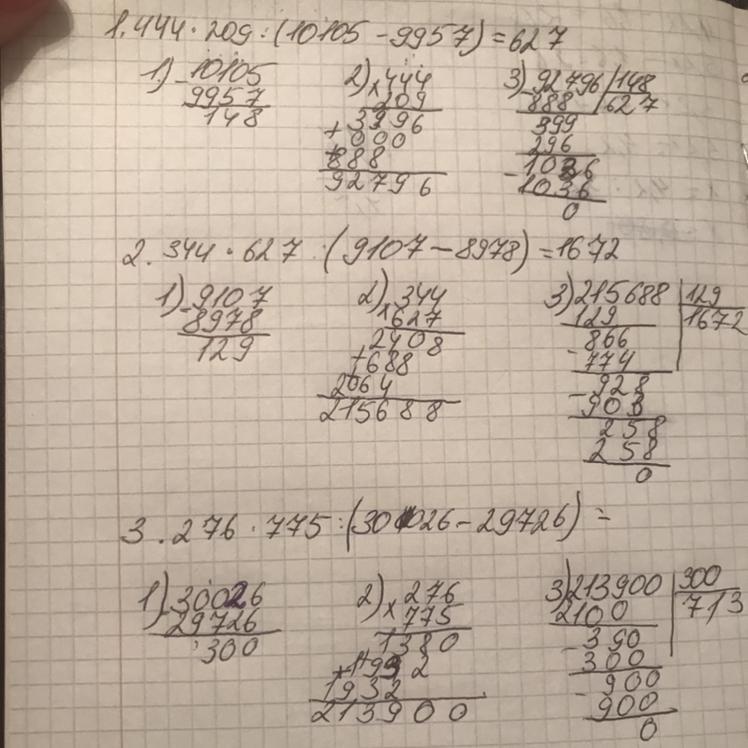 1. 444 · 209 : (10105 - 9957) = 627
1) 10105 2) 444 3) 92796 | 148
- 9957 × 209 - 888 627
148 3996 399
+ 000 296
+ 888 1036
92796 - 1036
0
2. 344 · 627 : (9107 - 8978) = 1672
1) 9107 2) 344 3) 215688 | 129
- 8978 × 627 129 1672
129 2408 866
+ 688 - 774
2064 928
215688 - 903
258
258
0
3. 276 · 775 : (30026 - 29726) =
1) 30026 2) 276 3) 213900 | 300
- 29726 × 775 2100 713
300 1380 390
+ 1932 - 300
1932 900
213900 - 900
0